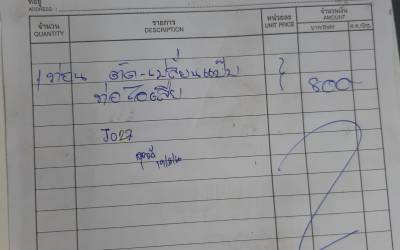 ที่อยู่
ADDRESS
จำนวน รายการ หน่วยละ จำนวนเงิน
QUANTITY DESCRIPTION UNIT PRICE AMOUNT
1 ท่อน ตัด-เปลี่ยนแป๊บ 800
ท่อไอเสีย
J027